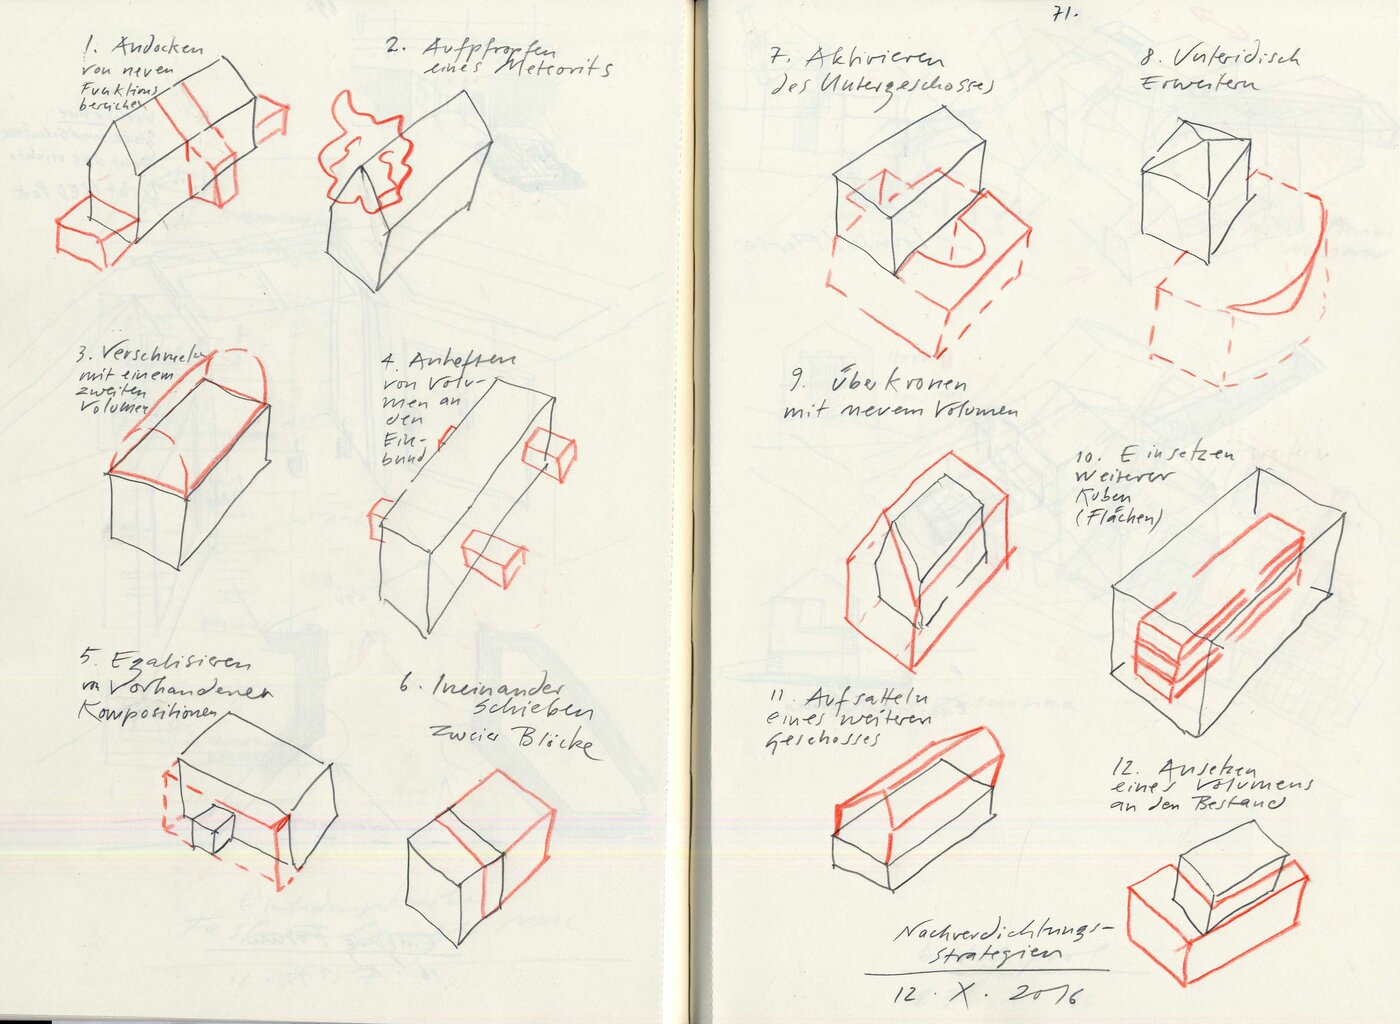 1. Andocken
von neuen
Funktions
bereichen
2. Aufpfropfen
eines Meteorits
3. Verschmeln
mit einem
zweiten
Volumen
4. Anheften
von Volu-
men an
den
Ein-
bund
5. Egalisieren
von Vorhandenen
Kompositionen
6. Ineinander
schieben
zweier Blöcke
71.
7. Aktivieren
des Untergeschosses
8. Unteridisch
Erweitern
9. Überkronen
mit neuem Volumen
10. Einsetzen
weiterer
Kuben
(Flächen)
11. Aufsatteln
eines weiteren
Geschosses
12. Ansetzen
eines Volumens
an den Bestand
Nachverdichtungs-
strategien
12. X. 2016